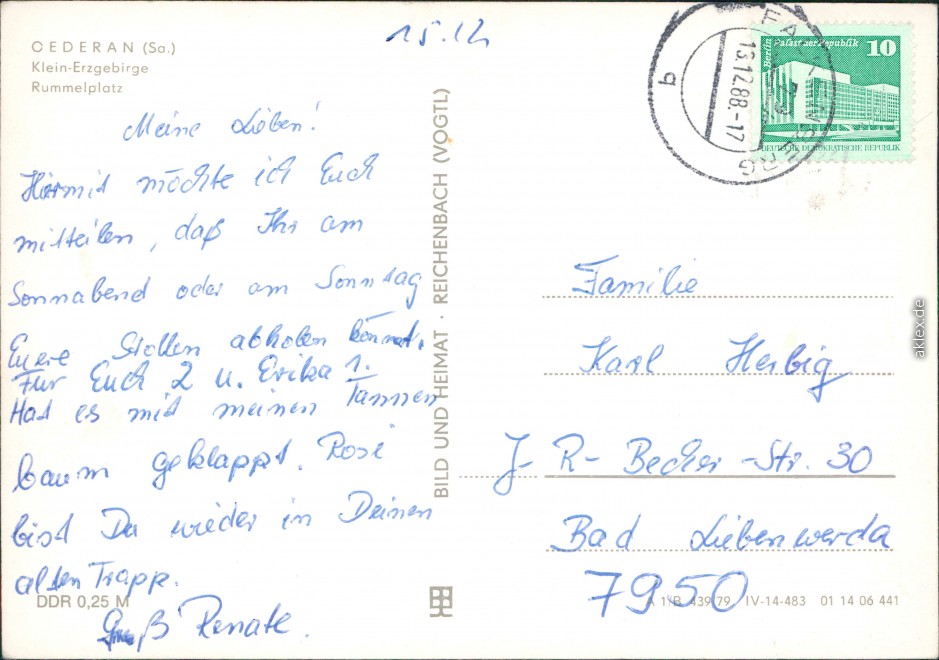 OEDERAN (Sa.)
Klein-Erzgebirge
Rummelplatz
15.12
Meine Lieben!
Hiermit möchte ich Euch
mitteilen, daß Ihr am
Sonnabend oder am Sonntag
Euere Stollen abholen könnt.
Für Euch 2 u. Erika 1.
Hat es mit meinen Tannen
baum geklappt. Rosi
bist Du wieder in Deinen
alten Trapp.
Gruß Renate.
DDR 0,25 M
BILD UND HEIMAT · REICHENBACH (VOGTL)
13.12.88.-17
b
Berlin
Palast der Republik
10
DEUTSCHE DEMOKRATISCHE REPUBLIK
Familie
Karl Herbig
J-R-Becher-Str. 30
Bad Liebenwerda
7950
A 1/B 439/79 IV-14-483 01 14 06 441
aklex.de